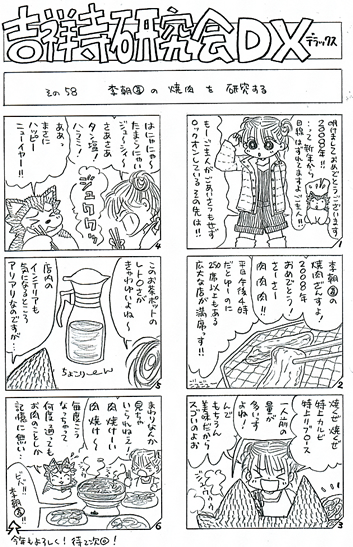 吉祥寺研究会DX
デラックス
その58 李朝園の焼肉を研究する
明けまして
おめでとうございます
2008年!!
…って新年から
目線はずれてますよご主人!!
もーご主人が
ごあいさつもせず
ロックオンしている
その先は!!
1
李朝園の
焼肉ざんすよ!
2008年
おめでとう!
さーさー
肉肉肉!!
平日午後4時
だとゆーのに
250席以上もある
広大な店が満席っす!!
2
焼くぜ焼くぜ
特上カルビ
特上リブロース
一人前の
量が
多いっす
よね!
んで
もちろん
美味だから
スゴいのよぉ
3
はにゃにゃ〜
たまらにゃい
ジュ〜シ〜
さあさあ
タン塩!
ハラミ!
ああっ
まさに
ハッピー
ニューイヤー!!
ジュワワッ
4
このお茶ポットの
レトロさが
きゃわゆいね〜
店内の
インテリアも
気になるところ
アリアリなのですが…
ちょこりーん
5
まわりなんか
見ちゃ
いられねえ!
肉焼けーい
肉焼けーい
毎度こう
なっちゃって
何度通っても
お肉のことしか
記憶に無い…
李朝園!!
6
今年もよろしく!待て次回!